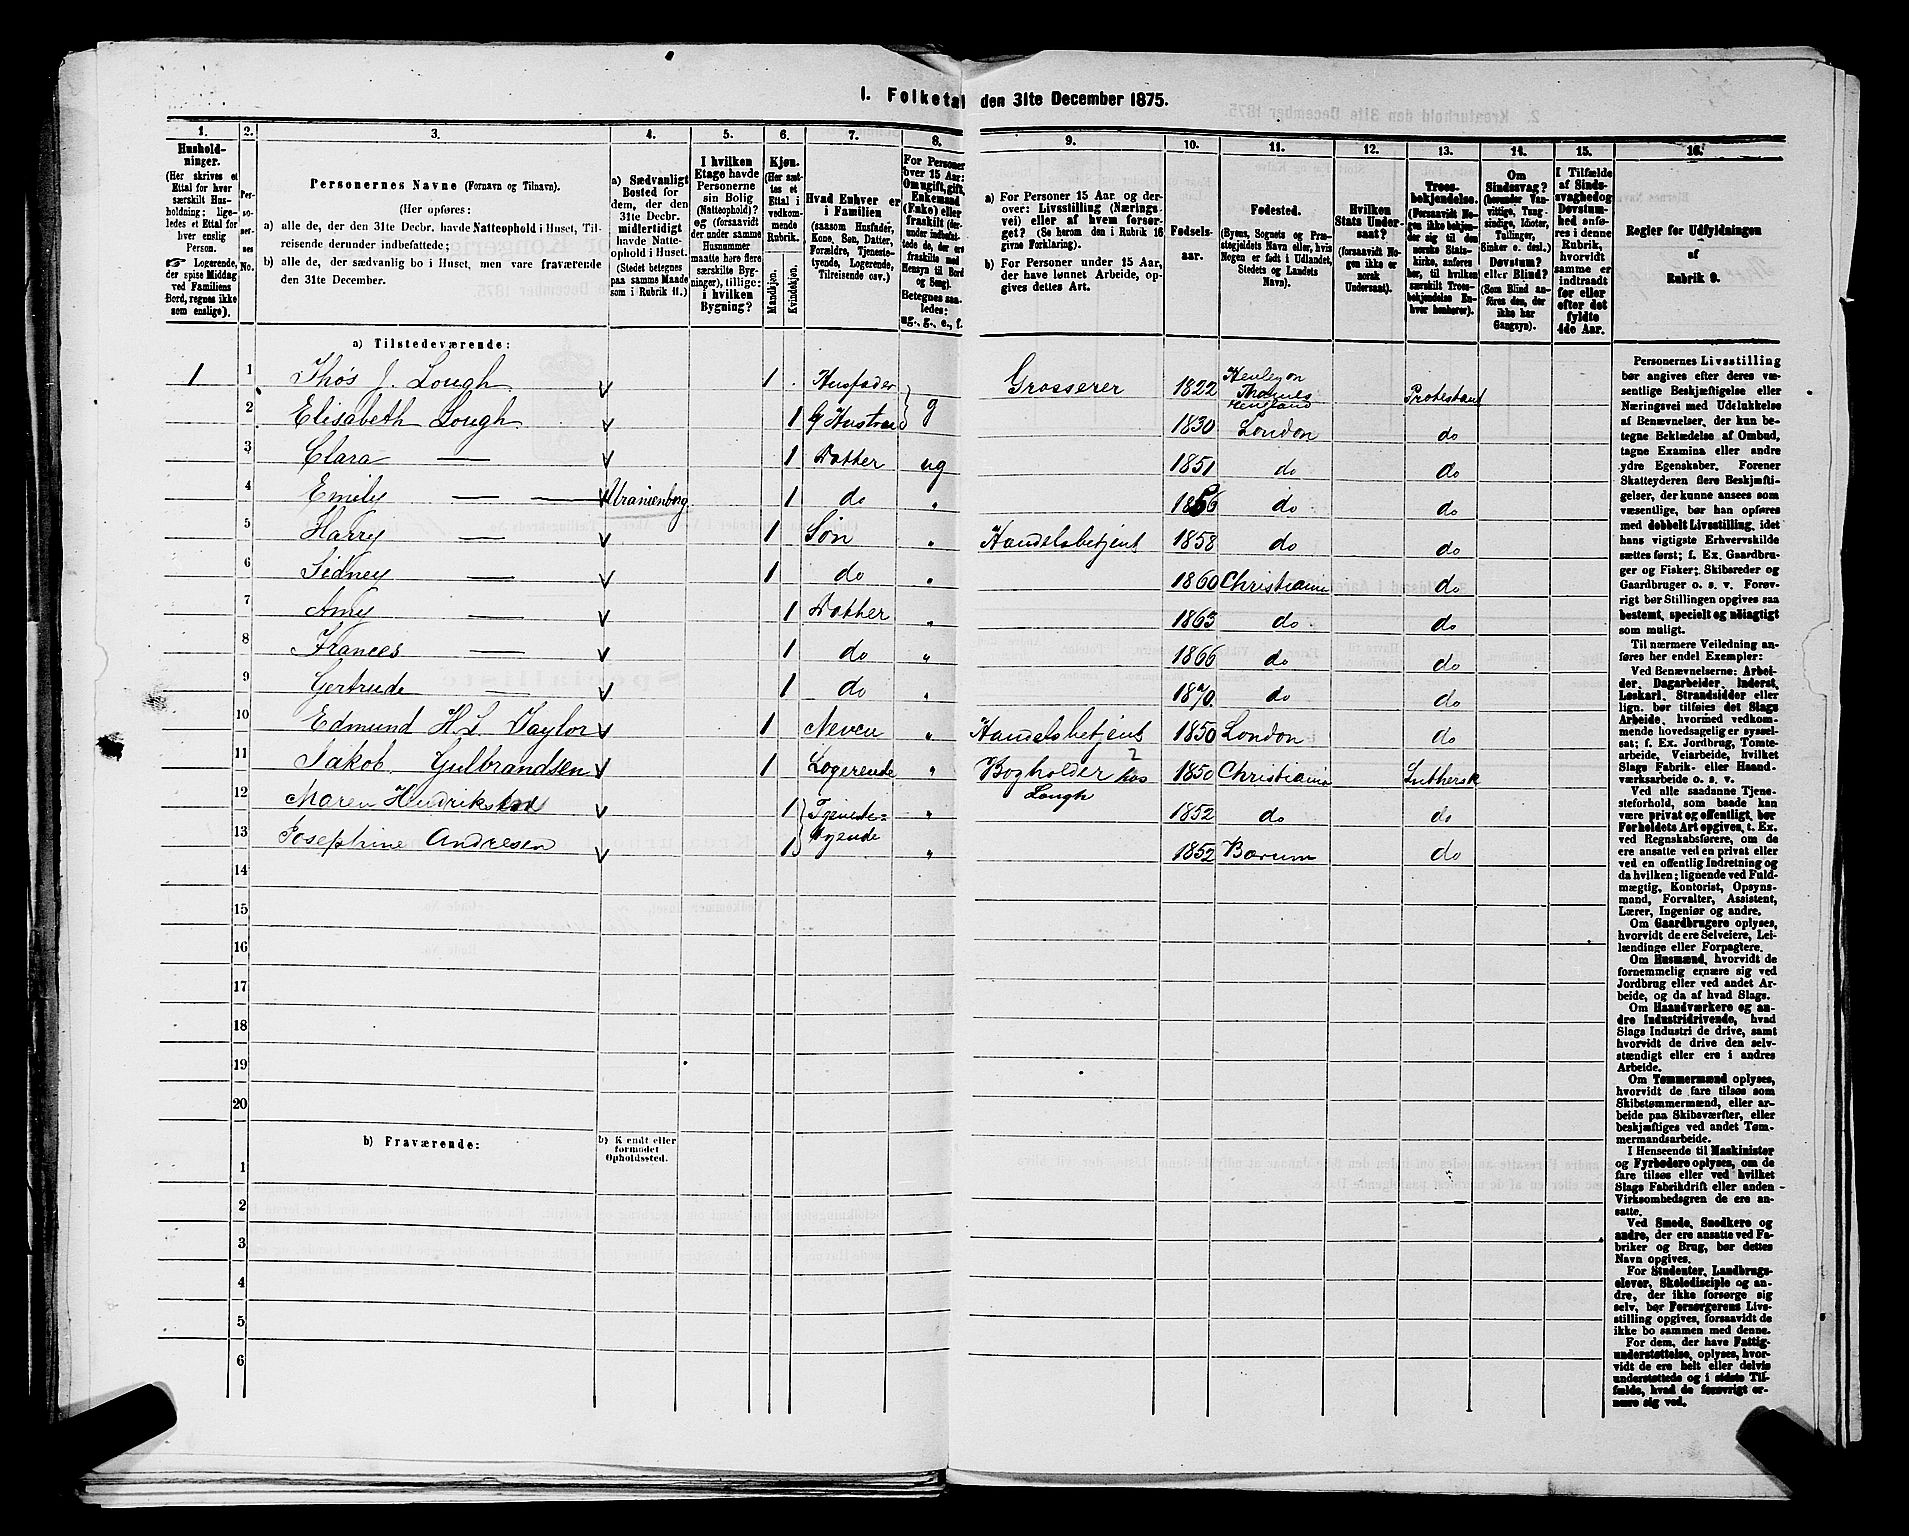 1. Folketal den 31te December 1875.
1. 2. 3. 4. 5. 6. 7. 8. 9. 10. 11. 12. 13. 14. 15. 16.
Hushold-
ninger.
(Her skrives et
Ettal for hver
særskilt Hus-
holdning; lige-
ledes et Ettal for
hver enslig
Person.
☞ Logerende,
der spise Middag
ved Familiens
Bord, regnes ikke
som enslige).
Per-
so-
ner-
nes
No.
Personernes Navne (Fornavn og Tilnavn).
(Her opføres:
a) alle de, der den 31te Decbr. havde Natteophold i Huset, Til-
reisende derunder indbefattede;
b) alle de, der sædvanlig bo i Huset, men vare fraværende
den 31te December.
a) Sædvanligt
Bosted for
dem, der den
31te Decbr.
midlertidigt
havde Natte-
ophold i Huset.
(Stedet betegnes
paa samme Maade
som i Rubrik 11.)
I hvilken
Etage havde
Personerne
sin Bolig
(Natteophold)?
og (forsaavidt
der under samme
Husnummer
maatte høre flere
særskilte Byg-
ninger), tillige:
i hvilken
Bygning?
Kjøn.
(Her sæt-
tes et
Ettal i
vedkom-
mende
Rubrik.
Mandkjøn.
Kvindekjøn.
Hvad Enhver er
i Familien
(saasom Husfader,
Kone, Søn, Datter,
Forældre, Tjeneste-
tyende, Logerende,
Tilreisende osv.)
For Personer
over 15 Aar:
Om ugift, gift,
Enkemand
(Enke) eller
fraskilt (der-
under indbefat-
tede de, der ere
fraskilte med
Hensyn til Bord
og Seng).
Betegnes saa-
ledes:
ug., g., e., f.
a) For Personer 15 Aar og der-
over: Livsstilling (Nærings-
vei) eller af hvem forsør-
get? (Se herom den i Rubrik 16
givne Forklaring).
b) For Personer under 15 Aar,
der have lønnet Arbeide, op-
gives dettes Art.
Fødsels-
aar.
Fødested.
(Byens, Sognets og Præ-
stegjeldets Navn eller, hvis
Nogen er født i Udlandet,
Stedets og Landets
Navn).
Hvilken
Stats Under-
saat?
(forsaavidt No-
gen ikke er
norsk
Undersaat).
Troes-
bekjendelse.
(Forsaavidt No-
gen ikke bekjen-
der sig til den
norske Stats-
kirke, anføres
her, til hvilken
særskilt Troes-
bekjendelse En-
hver henhører).
Om
Sindssvag?
(herunder Van-
vittige, Tung-
sindige, Idioter,
Tullinger,
Sinker o. desl.)
Døvstum?
eller Blind?
(Som Blind an-
føres den, der
ikke har
Gangsyn).
I Tilfælde
af Sinds-
svaghed og
Døvstum-
hed anfø-
res i denne
Rubrik,
hvorvidt
samme er
indtraadt
før eller
efter det
fyldte
4de Aar.
Regler for Udfyldningen
af
Rubrik 9.
a) Tilstedeværende:
1 1 Thós J. Lough 1 Husfader g Grosserer 1822 Henley on Thames England Protestant
2 Elisabeth Lough 1 G Hustru 1830 London do
3 Clara — 1 Datter ug 1851 do do
4 Emily — — Uranienborg 1 do " 1856 do do
5 Harry — 1 Søn " Handelsbetjent 1858 do do
6 Sidney — 1 do " 1860 Christiania do
7 Amy — 1 Datter " 1863 do do
8 Frances — 1 do " 1866 do do
9 Gertrude — 1 do " 1870 do do
10 Edmund H. L. Taylor 1 Neveu " Handelsbetjent 1850 London do
11 Jakob Gulbrandsen 1 Logerende " Bogholder hos Lough 1850 Christiania Luthersk
12 Maren 1 Tjeneste= " 1852 do do
13 Josephine Andresen 1 tyende " 1852 Bærum do
14
15
16
17
18
19
20
b) Fraværende:
b) Kjendt eller
formodet
Opholdssted.
1
2
3
4
5
6
Personernes Livsstilling
bør angives efter deres væ-
sentlige Beskjæftigelse eller
Næringsvei med Udelukkelse
af Benævnelser, der kun be-
tegne Beklædelse af Ombud,
tagne Examina eller andre
ydre Egenskaber. Forener
Skatteyderen flere Beskjæfti-
gelser, der kunne ansees som
væsentlige, bør han opføres
med dobbelt Livsstilling, idet
hans vigtigste Erhvervskilde
sættes først; f. Ex. Gaardbru-
ger og Fisker; Skibsreder og
Gaardbruger o. s. v. Forøv-
rigt bør Stillingen opgives saa
bestemt, specielt og nøiagtigt
som muligt.
Til nærmere Veiledning an-
føres her endel Exempler:
Ved Benævnelserne: Arbei-
der, Dagarbeider, Inderst,
Løskarl, Strandsidder eller
lign. bør tilføies det Slags
Arbeide, hvormed vedkom-
mende hovedsagelig er syssel-
sat; f. Ex. Jordbrug, Tomte-
arbeide, Veiarbeide, hvilket
Slags Fabrik- eller Haand-
værksarbeide o. s. v.
Ved alle saadanne Tjene-
steforhold, som baade kan
være privat og offentligt, bør
Forholdets Art opgives, t. Ex.
ved Regnskabsførere, om de
ere ansatte ved en privat eller
ved en offentlig Indretning og
da hvilken; lignende ved Fuld-
mægtig, Kontorist, Opsyns-
mand, Forvalter, Assistent,
Lærer, Ingeniør og andre.
Om Gaardbrugere oplyses,
hvorvidt de ere Selveiere, Lei-
lændinge eller Forpagtere.
Om Husmænd, hvorvidt de
fornemmelig ernære sig ved
Jordbrug eller ved andet Ar-
beide, og da af hvad Slags.
Om Haandværkere og an-
dre Industridrivende, hvad
Slags Industri de drive, samt
hvorvidt de drive den selv-
stændigt eller ere i andres
Arbeide.
Om Tømmermænd oplyses,
hvorvidt de fare tilsøs som
Skibstømmermænd, eller ar-
beide paa Skibsværfter, eller
beskjæftiges ved andet Tøm-
mermandsarbeide.
I Henseende til Maskinister
og Fyrbødere oplyses, om de
fare tilsøs eller ved hvilket
Slags Fabrikdrift eller anden
Virksomhedsgren de ere an-
satte.
Ved Smede, Snedkere og
andre, der ere ansatte ved Fa-
briker og Brug, bør dettes
Navn opgives.
For Studenter, Landbrugs-
elever, Skoledisciple og an-
dre, der ikke forsørge sig
selv, bør Forsørgerens Livs-
stilling opgives, forsaavidt de
ikke bo sammen med denne.
For dem, der have Fattig-
understøttelse, oplyses, hvor-
vidt de ere helt eller delvis
understøttede og i sidste Til-
fælde, hvad de forøvrigt er-
nære sig ved.